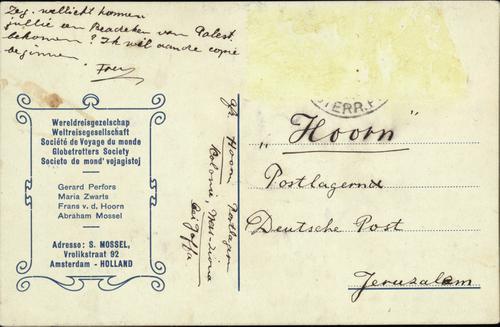 Zeg, wellicht kunnen
jullie een Baedeker van Palest.
bekomen? Ik wil aan de copie
beginnen.
Frans
Wereldreisgezelschap
Weltreisegesellschaft
Société de Voyage du monde
Globetrotters Society
Societo de mond' vojagistoj
Gerard Perfors
Maria Zwarts
Frans v. d. Hoorn
Abraham Mossel
Adresse: S. MOSSEL,
Vrolikstraat 92
Amsterdam - HOLLAND
Hoorn Postlagern
Kolonie,
bei Jaffa
STERR. P
„Hoorn"
Postlagernd
Deutsche Post
Jeruzalem